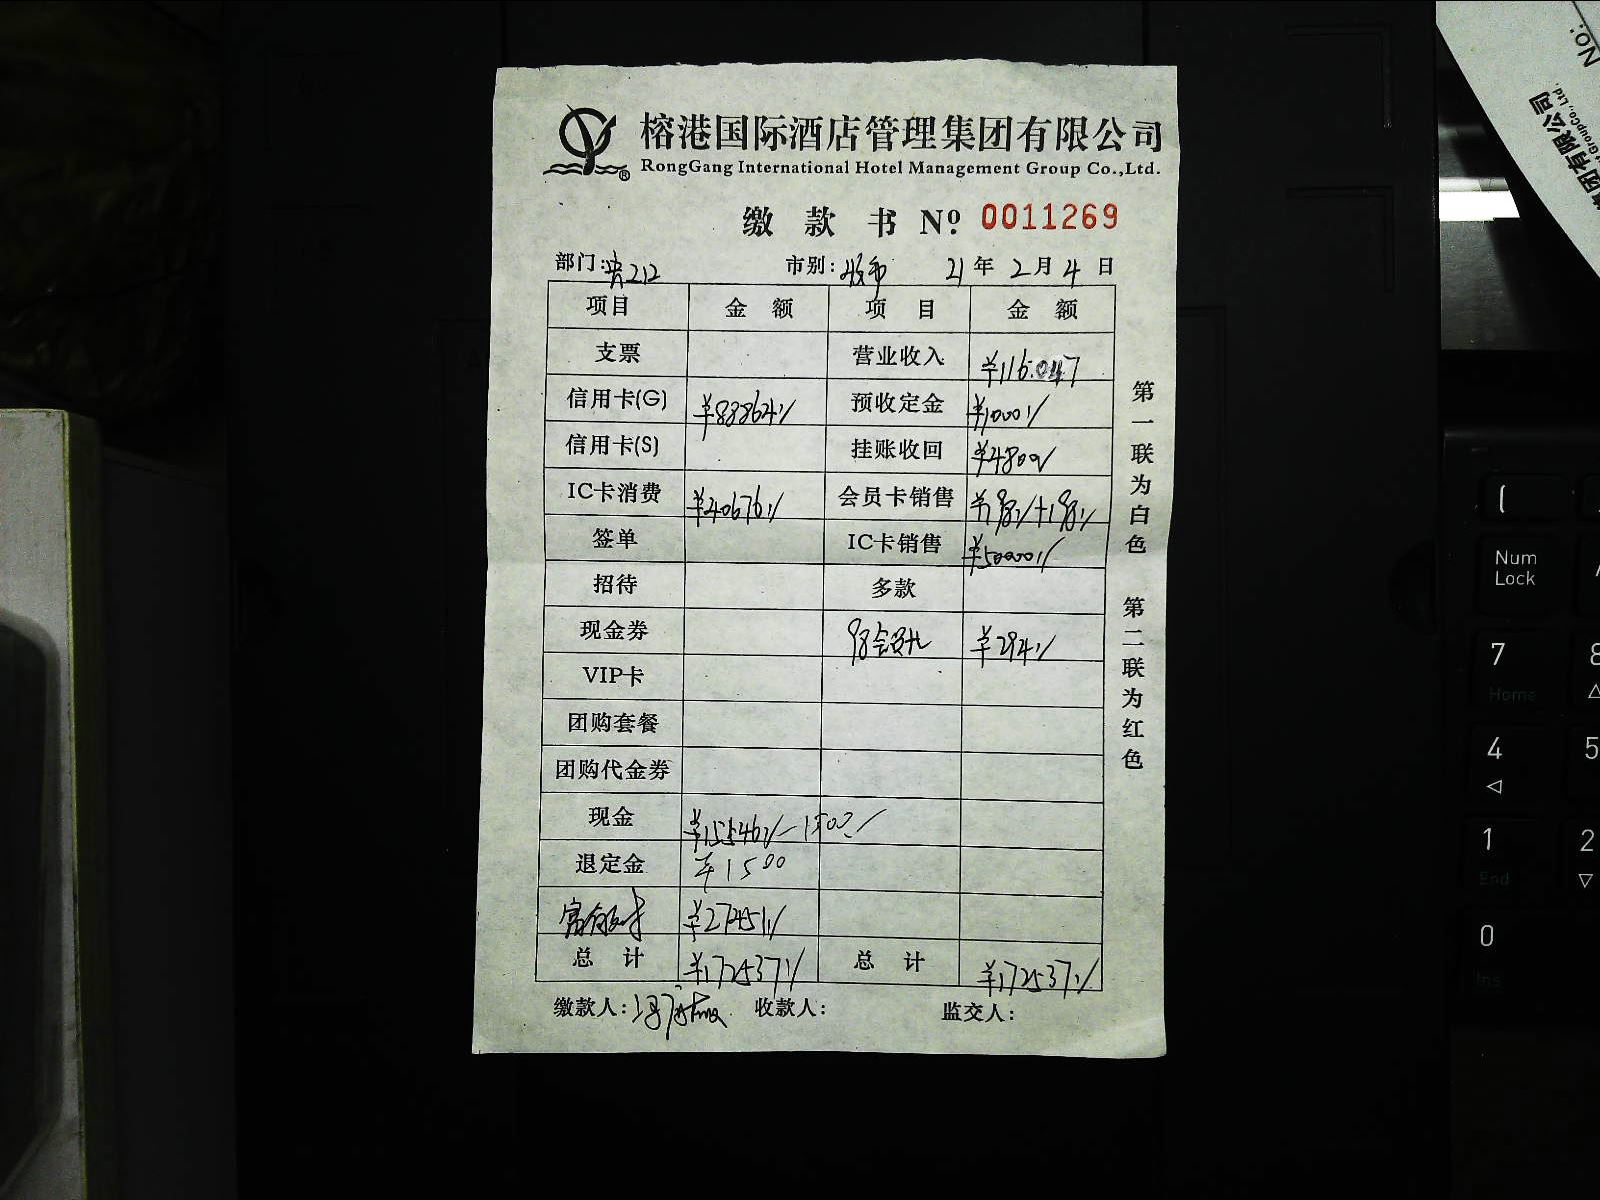 榕港国际酒店管理集团有限公司
RongGang International Hotel Management Group Co.,Ltd.
缴 款 书 Nº 0011269
部门: 212 市别: 夜市 21 年 2 月 4 日
项目 金 额 项 目 金 额
支票 营业收入 ¥116047
信用卡(G) ¥88864 预收定金 ¥1000
信用卡(S) 挂账收回 ¥4800
IC卡消费 ¥40676 会员卡销售 ¥198+198
签单 IC卡销售 ¥50000
招待 多款
现金券 ¥294
VIP卡
团购套餐
团购代金券
现金 ¥15546-1500
退定金 ¥1500
¥27451
总 计 ¥172537 总 计 ¥172537
缴款人: 收款人: 监交人:
第一联为白色
第二联为红色
No:
Num
Lock
7
Home
4
5
1
End
2
0
Ins